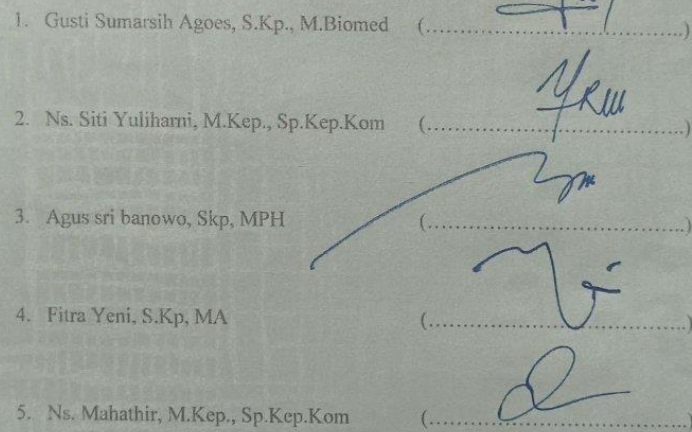 1. Gusti Sumarsih Agoes, S.Kp., M.Biomed (........................................)
2. Ns. Siti Yuliharni, M.Kep., Sp.Kep.Kom (........................................)
3. Agus sri banowo, Skp, MPH (........................................)
4. Fitra Yeni, S.Kp, MA (........................................)
5. Ns. Mahathir, M.Kep., Sp.Kep.Kom (........................................)